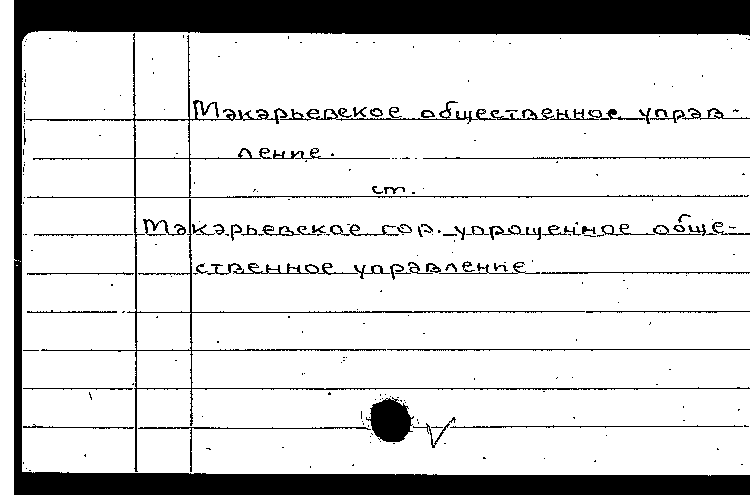 Макарьевское общественное управ-
ление.
ст.
Макарьевское гор. упрощенное обще-
ственное управление